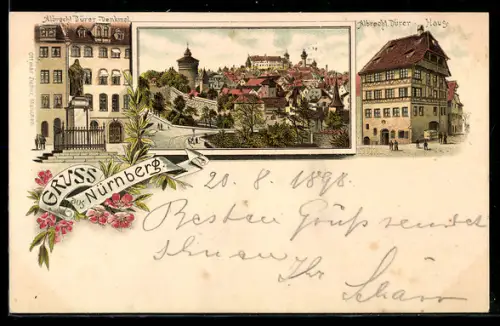 Albrecht Dürer Denkmal.
Albrecht Dürer Haus
GRUSS
aus
Nürnberg
20. 8. 1898
Besten Gruß sendet
Ihnen Ihr